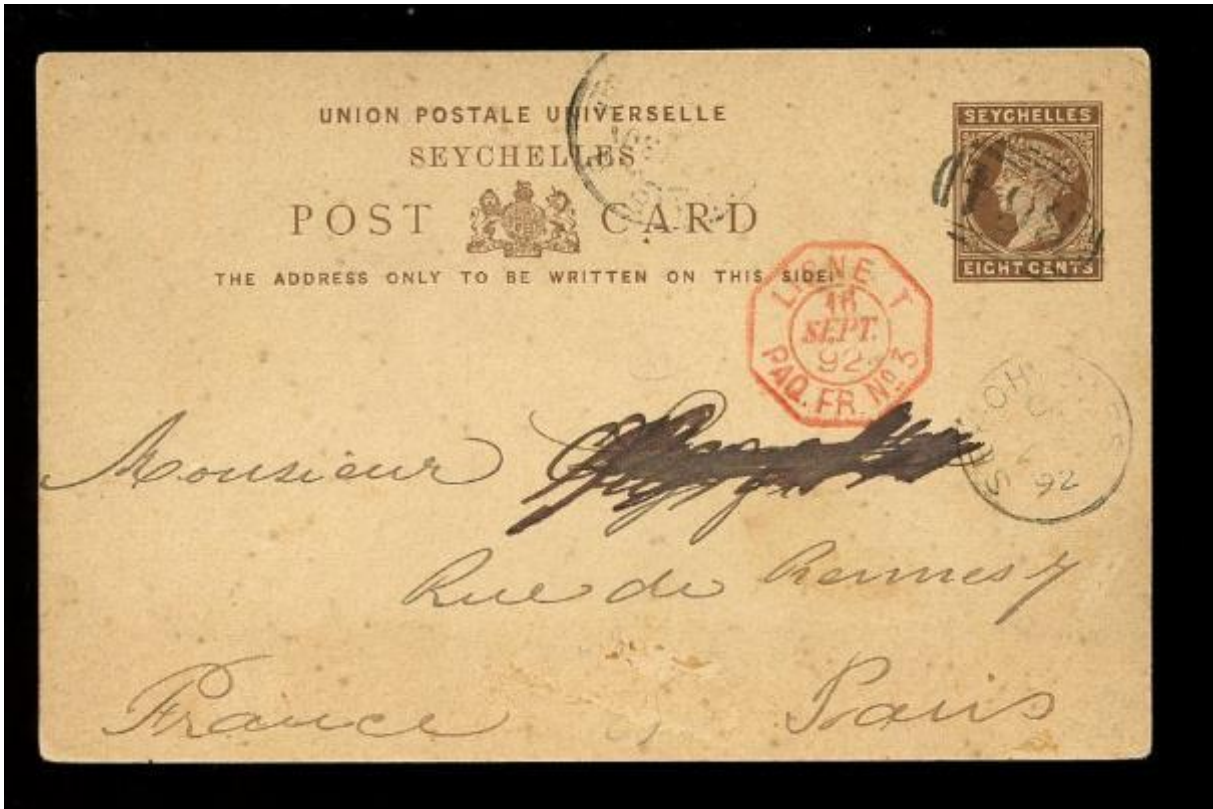 UNION POSTALE UNIVERSELLE
SEYCHELLES
POST CARD
THE ADDRESS ONLY TO BE WRITTEN ON THIS SIDE.
SEYCHELLES
EIGHT CENTS
LIGNE T
16
SEPT.
92
PAQ. FR. Nº 3
SEYCHELLES
92
Monsieur
Rue de Rennes 7
France Paris